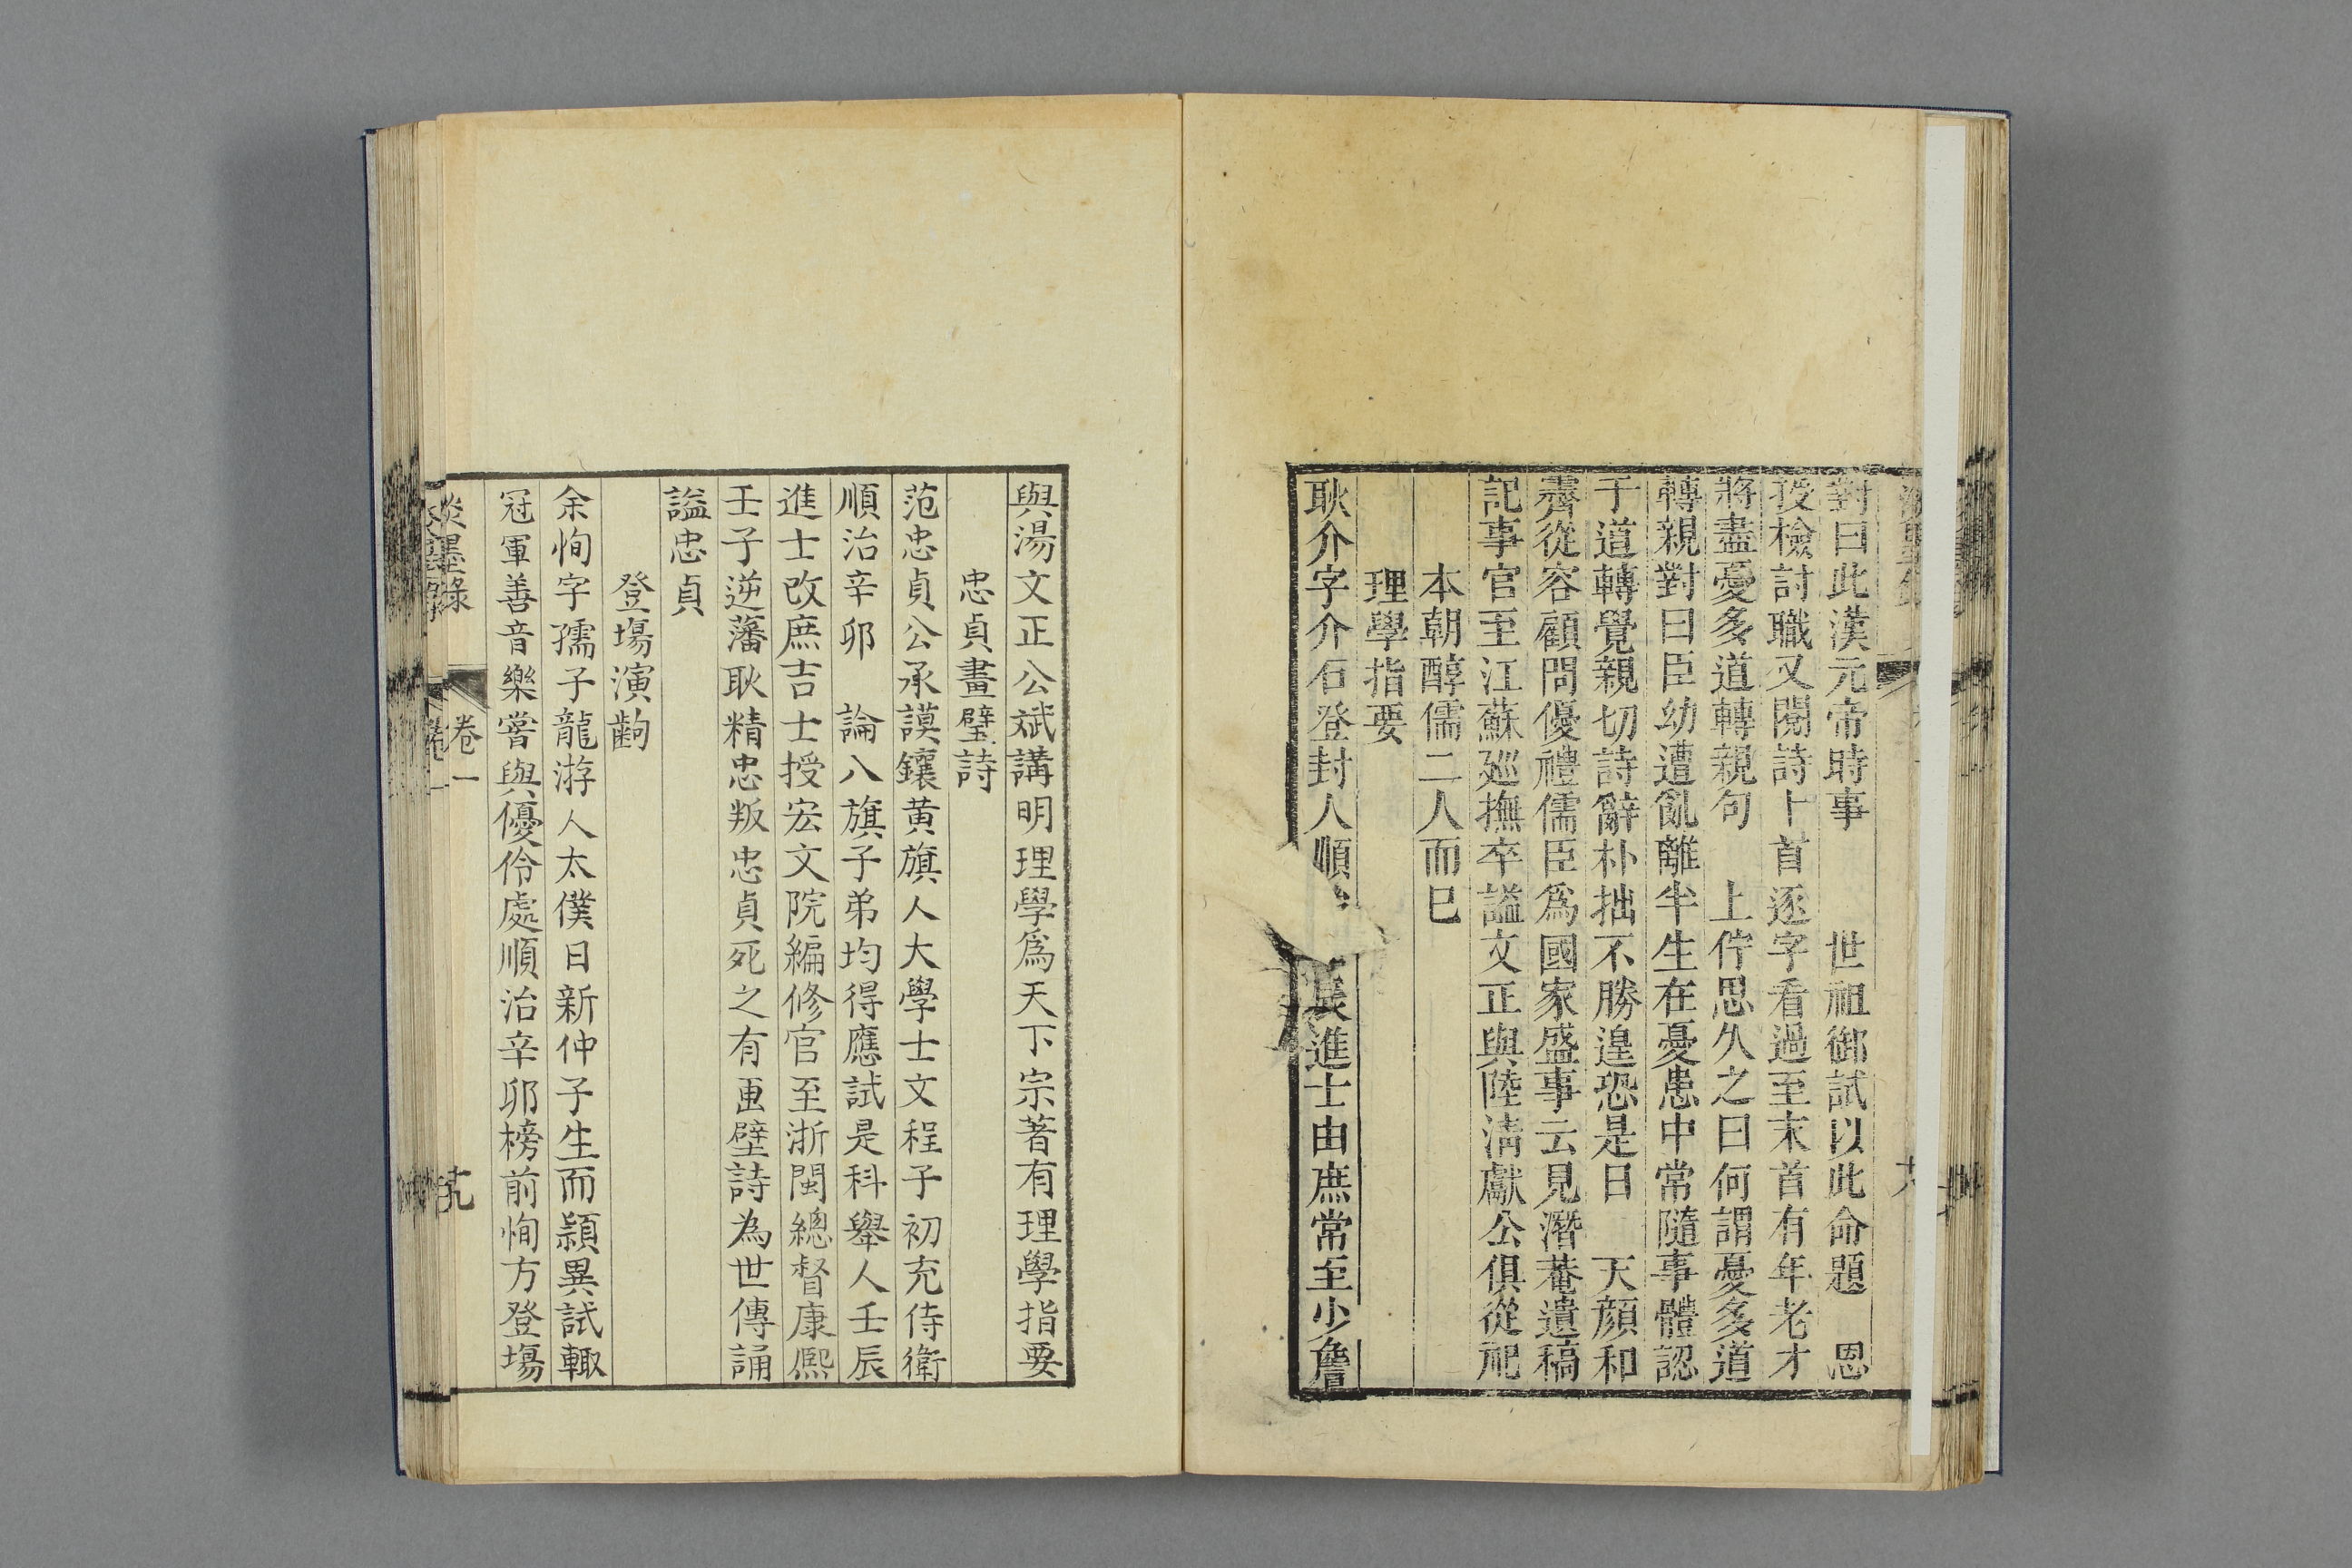 對曰此漢元帝時事　　世祖御試以此命題　恩
授檢討職又閱詩十首逐字看過至末首有年老才
將盡憂多道轉親句　上佇思久之曰何謂憂多道
轉親對曰臣幼遭亂離半生在憂患中常隨事體認
于道轉覺親切詩辭朴拙不勝遑恐是日　天顏和
霽從容顧問優禮儒臣爲國家盛事云見潛菴遺稿
記事官至江蘇廵撫卒謚文正與陸清獻公俱從祀
本朝醇儒二人而已
理學指要
耿介字介石登封人順
進士由庶常至少詹
與湯文正公斌講明理學爲天下宗著有理學指要
忠貞畫壁詩
范忠貞公承謨鑲黄旗人大學士文程子初充侍衛
順治辛卯　論八旗子弟均得應試是科舉人壬辰
進士改庶吉士授宏文院編修官至浙閩總督康熙
壬子逆藩耿精忠叛忠貞死之有画壁詩為世傳誦
謚忠貞
登塲演齣
余恂字孺子龍游人太僕日新仲子生而穎異試輙
冠軍善音樂嘗與優伶處順治辛卯榜前恂方登塲
淡墨錄
卷一